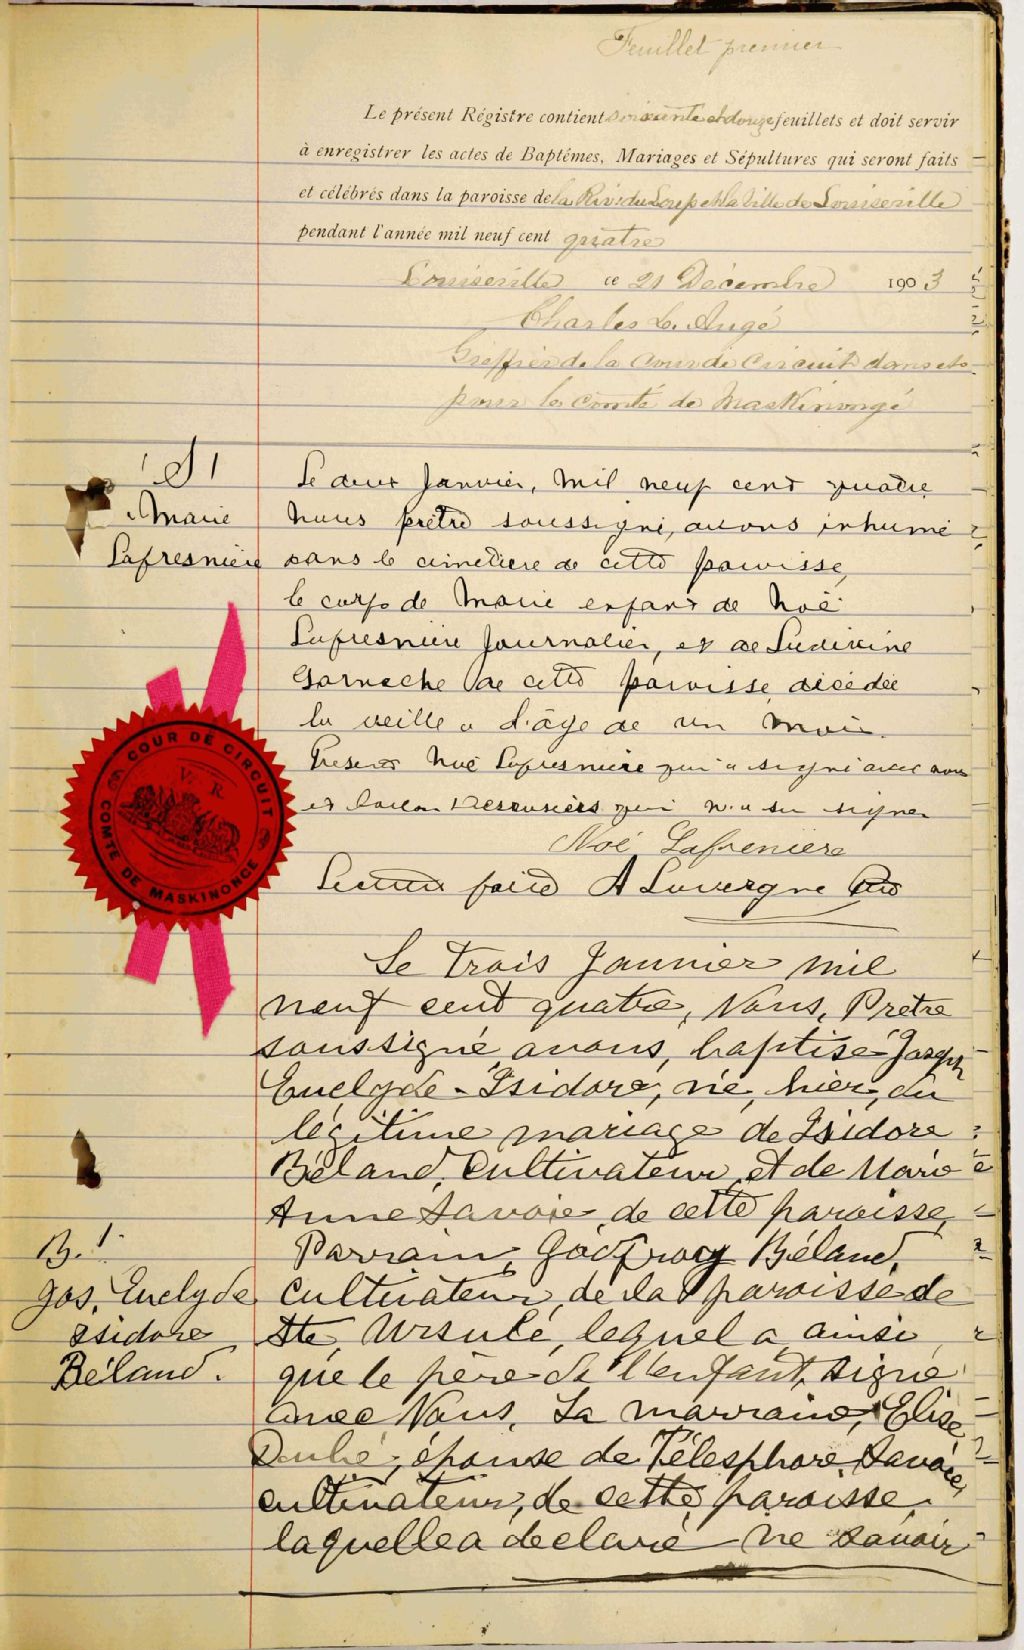 Feuillet premier
Le présent Régistre contient soixante et douze feuillets et doit servir
à enregistrer les actes de Baptêmes, Mariages et Sépultures qui seront faits
et célébrés dans la paroisse de la Riv. du Loup et la Ville de Louiseville
pendant l'année mil neuf cent quatre
Louiseville ce 21 Décembre 1903
Charles L. Augé
Greffier de la Cour de Circuit dans et
pour le comté de Maskinongé
S 1
Marie
Lafresnière
Le deux Janvier, mil neuf cent quatre
nous prêtre soussigné, avons inhumé
dans le cimetière de cette paroisse,
le corps de Marie enfant de Noé
Lafresnière Journalier, et de Ludivine
Garneche de cette paroisse décédée
la veille a l'âge de un mois.
Présent Noé Lafresnière qui a signé avec nous
et Desrusiers qui n'a su signer
Noé Lafrenière
Lecture faite A Lavergne Ptre
COUR DE CIRCUIT
V. R
COMTÉ DE MASKINONGÉ
Le trois Janvier mil
neuf cent quatre, Nous, Prêtre
soussigné avons, baptisé Joseph
Euclyde-Isidore, né, hier, du
légitime mariage de Isidore
Béland, Cultivateur, et de Marie
Anne Savoie, de cette paroisse,
Parrain, Godfroy Béland,
cultivateur, de la paroisse de
Ste, Ursule, lequel a, ainsi
que le père de l'enfant, signé
avec Nous, La marraine, Elise
Dubé, épouse de Télesphore Savoie,
cultivateur, de cette, paroisse,
laquelle a déclaré ne savoir
B. 1
Jos. Euclyde
Isidore
Béland.